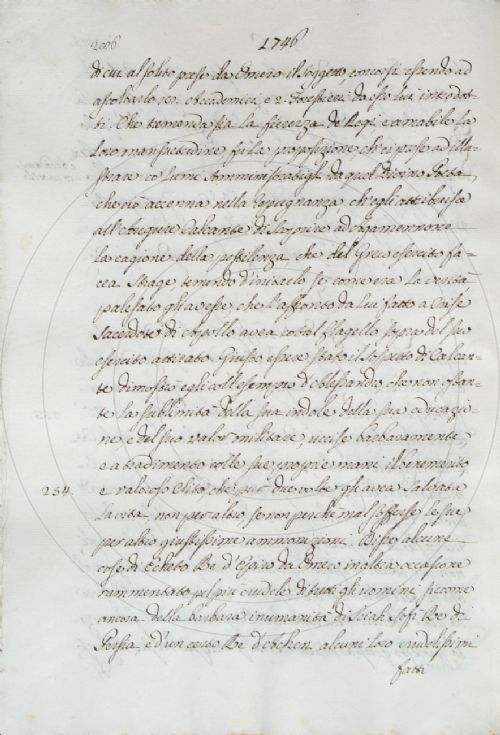 2006
1746
di cui al solito prese da Omero il soggetto, concorsi essendo ad
ascoltarlo 10. Accademici, e 2. Forestieri da esso lui introdot-
ti. Che tremenda sia la fierezza de' Regi, e amabile la
loro mansuetudine, fu la proposizione ch' ei prese ad illu-
strare co' lumi somministratigli da quel Divino Poeta,
che ciò accenna nella repugnanza ch' egli attribuisce
all' Augure Calcante di scoprire ad Agamennone
la cagione della pestilenza, che del Greco esercito fa-
cea strage, temendo d' inimicarselo se, come era la verità,
palesato gli avesse, che l' affronto da lui fatto a Crise
Sacerdote di Apollo avea cotal flagello sopra del suo
esercito attirato. Giusto essere stato il sospetto di Calcan-
te dimostra egli coll' esempio d' Alessandro, che non ostan-
te la sublimità della sua indole, della sua educazio-
ne, e del suo valor militare, uccise barbaramente,
e a tradimento colle sue proprie mani il benemerito
254.
e valoroso Clito, che pur due volte gli avea salvata
la vita, non per altro se non perchè mal sofferse le sue
per altro giustissime ammonizioni. Dipoi alcune
cose di Echeto Re d' Epiro da Omero in altra occasione
rammentato pel più crudele di tutti gli uomini, siccome
ancora della barbara inumanità di Sciah Sofi Re di
Persia, e d' un certo Re d' Achen, alcuni loro crudelissimi
fatti